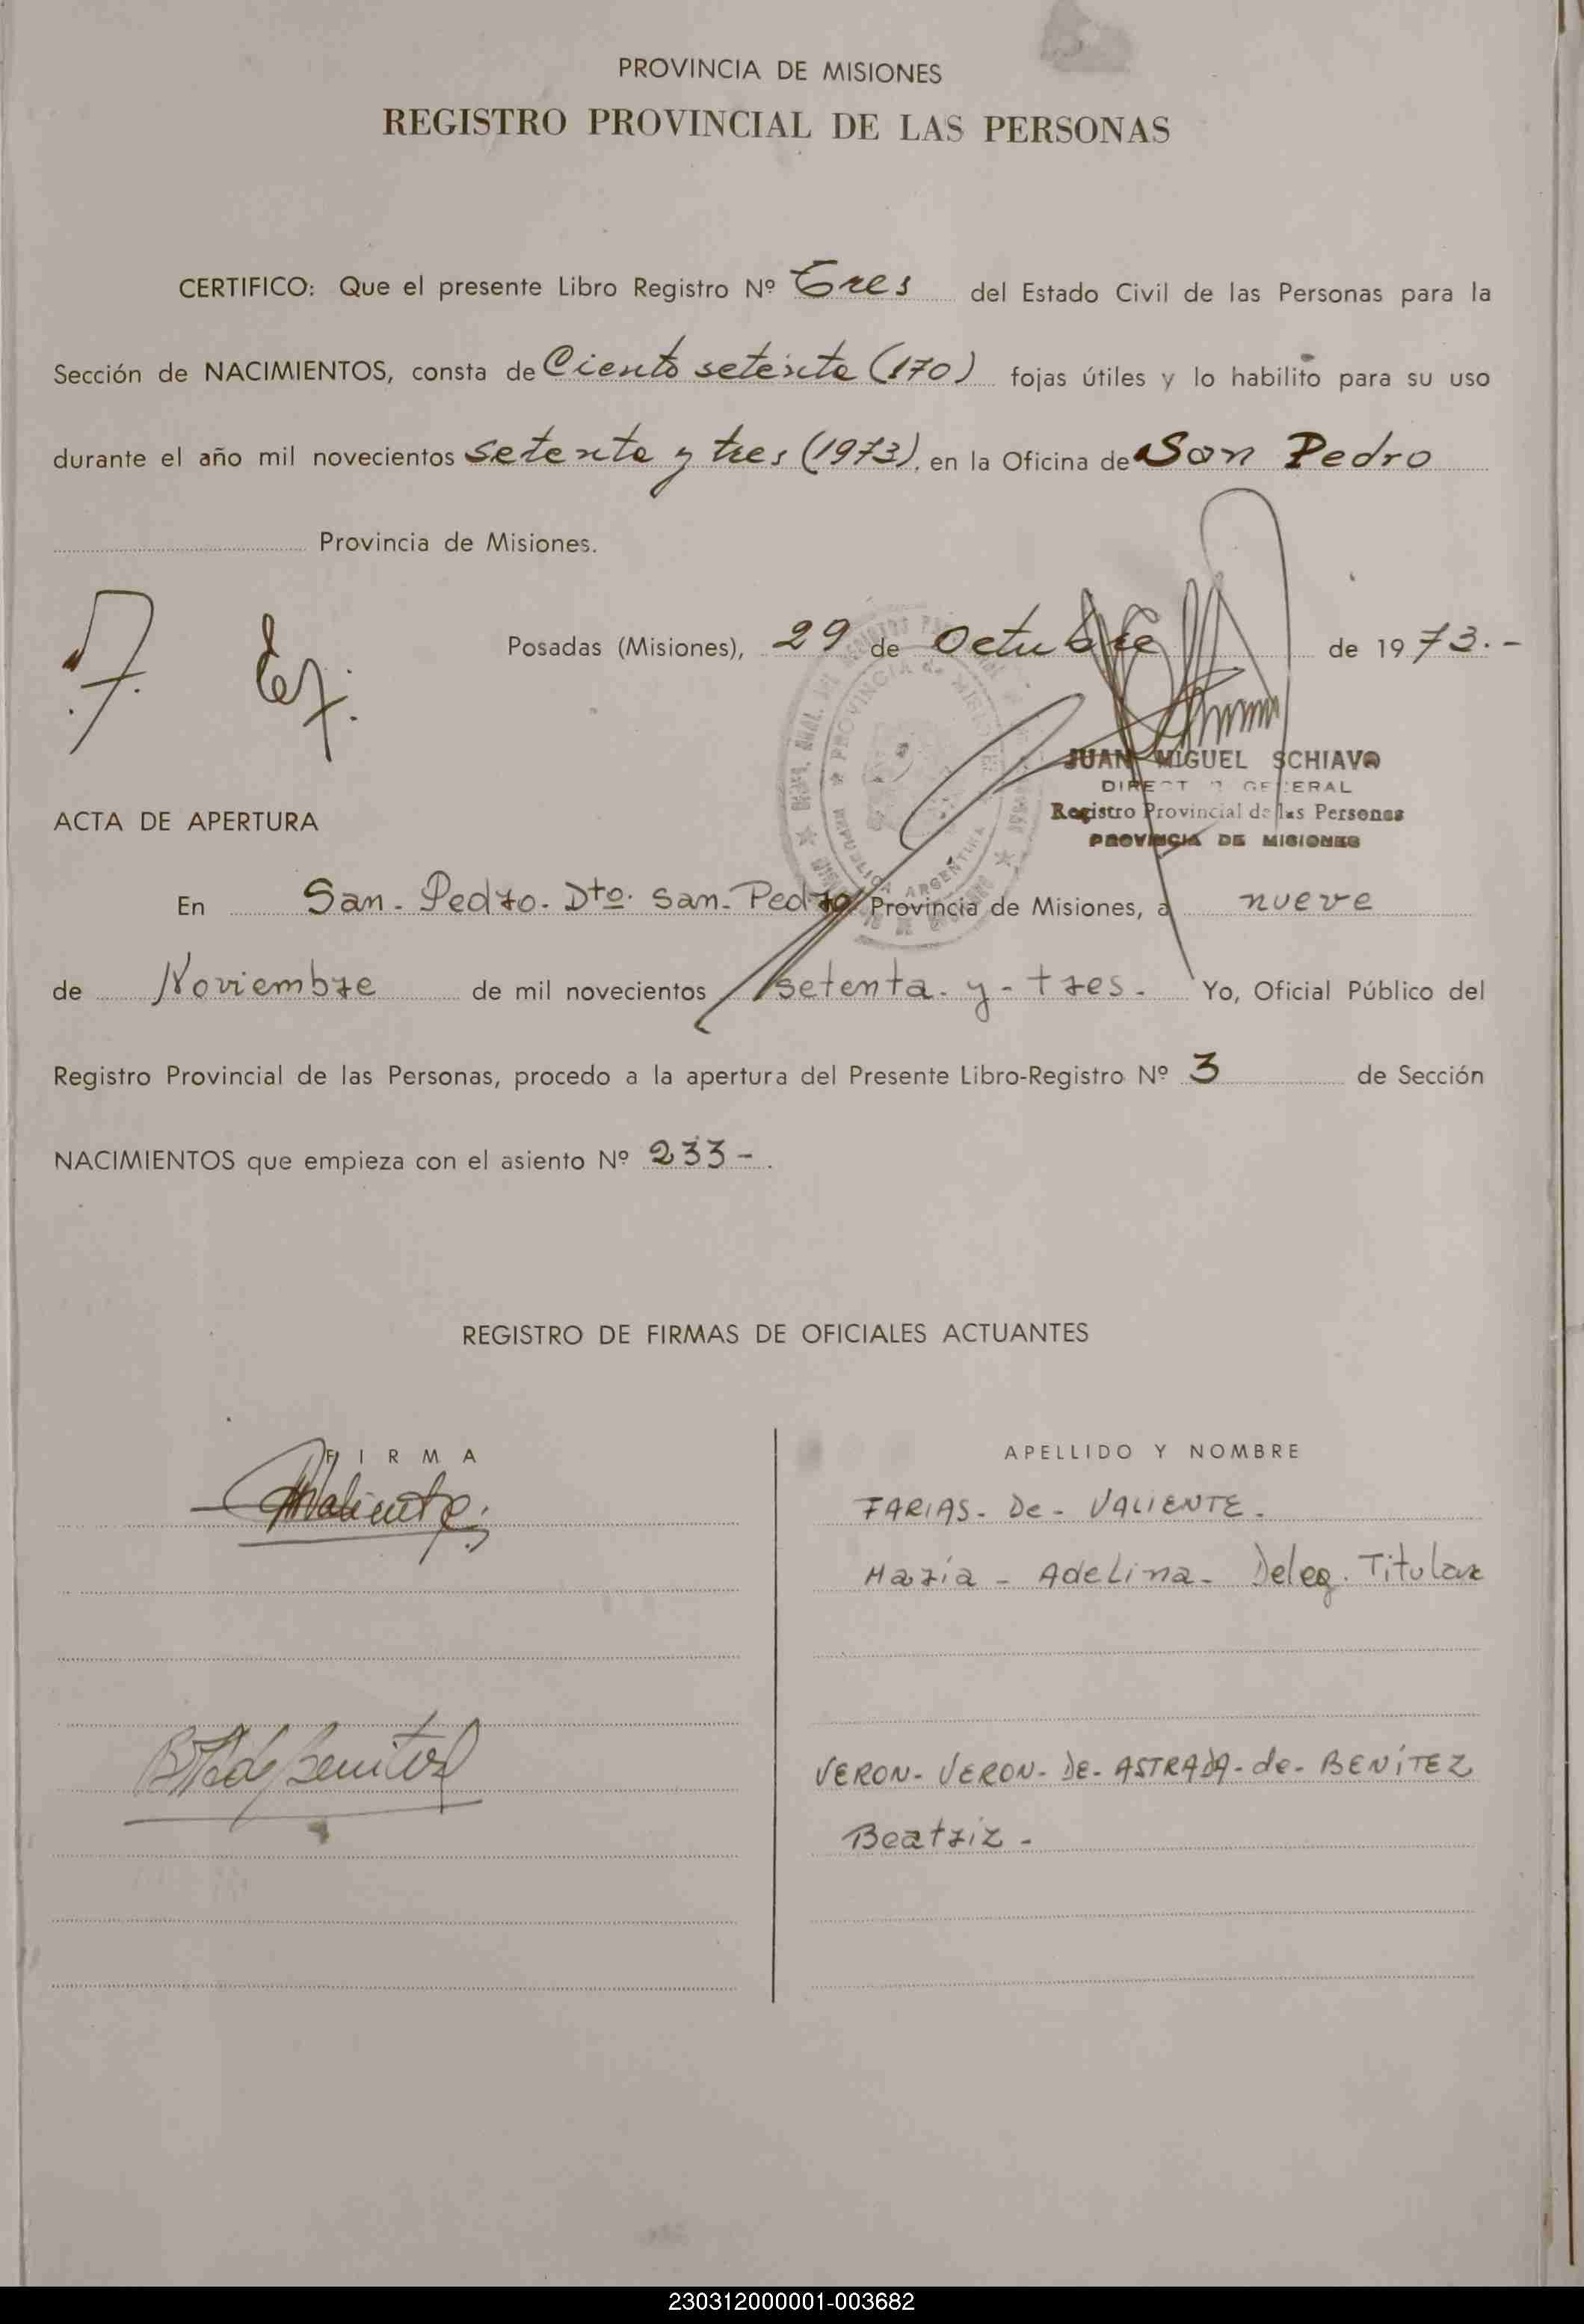 PROVINCIA DE MISIONES
REGISTRO PROVINCIAL DE LAS PERSONAS
CERTIFICO: Que el presente Libro Registro Nº Tres del Estado Civil de las Personas para la
Sección de NACIMIENTOS, consta de Ciento setenta (170) fojas útiles y lo habilito para su uso
durante el año mil novecientos setenta y tres (1973), en la Oficina de San Pedro
Provincia de Misiones.
Posadas (Misiones), 29 de Octubre de 1973.-
JUAN MIGUEL SCHIAVO
DIRECTOR GENERAL
Registro Provincial de las Personas
PROVINCIA DE MISIONES
ACTA DE APERTURA
En San-Pedro. Dto. San-Pedro Provincia de Misiones, a nueve
de Noviembre de mil novecientos setenta-y-tres- Yo, Oficial Público del
Registro Provincial de las Personas, procedo a la apertura del Presente Libro-Registro Nº 3 de Sección
NACIMIENTOS que empieza con el asiento Nº 233-.
REGISTRO DE FIRMAS DE OFICIALES ACTUANTES
FIRMA
APELLIDO Y NOMBRE
FARIAS-De-VALIENTE.
María-Adelina-Deleg. Titular
VERON-VERON-DE-ASTRADA-de-BENÍTEZ
Beatriz-
230312000001-003682